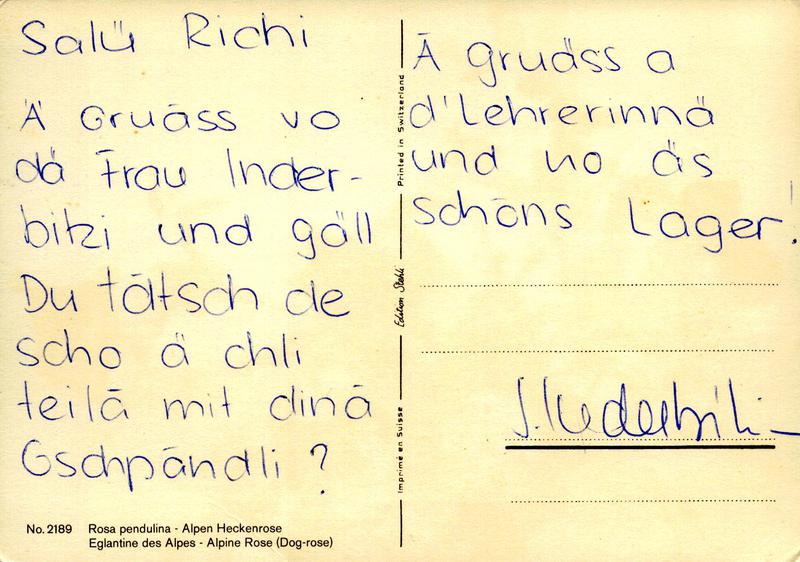 Salü Richi
Ä Gruäss vo
dä Frau Inder-
bitzi und gäll
Du tätsch de
scho ä chli
teilä mit dinä
Gschpändli ?
Ä gruäss a
d'Lehrerinnä
und no äs
schöns Lager!
Printed in Switzerland
Edition Stehli
Imprimé en Suisse
No. 2189 Rosa pendulina - Alpen Heckenrose
Eglantine des Alpes - Alpine Rose (Dog-rose)